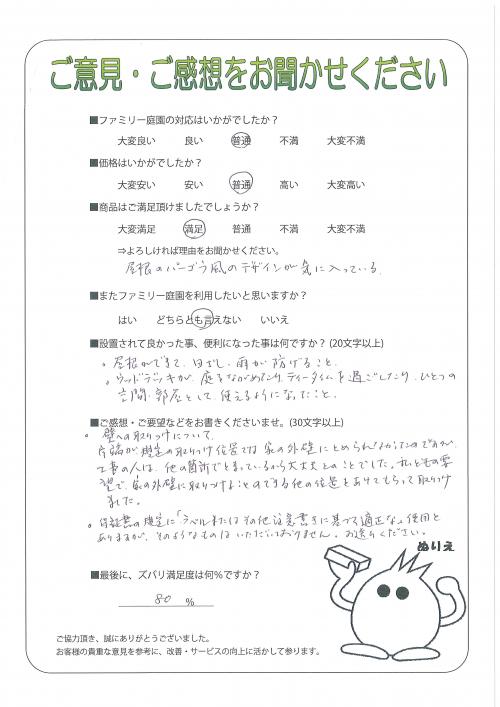 ご意見・ご感想をお聞かせください
■ファミリー庭園の対応はいかがでしたか？
大変良い 良い 普通 不満 大変不満
■価格はいかがでしたか？
大変安い 安い 普通 高い 大変高い
■商品はご満足頂けましたでしょうか？
大変満足 満足 普通 不満 大変不満
⇒よろしければ理由をお聞かせください。
屋根のパーゴラ風のデザインが気に入っている。
■またファミリー庭園を利用したいと思いますか？
はい どちらとも言えない いいえ
■設置されて良かった事、便利になった事は何ですか？(20文字以上)
。屋根ができて、日ざし、雨が防げること。
。ウッドデッキが、庭をながめたり、ティータイムを過ごしたり、ひとつの
空間・部屋として、使えるようになったこと。
■ご感想・ご要望などをお書きくださいませ。(30文字以上)
。壁への取りつけについて、
両端が規定の取りつけ位置では家の外壁にとめられなかったのですが、
工事の人は、他の箇所でとまっているから大丈夫とのことでした。私どもの要
望で、家の外壁に取りつけることのできる他の位置とあけてもらって取りつけ
ました。
。保証書の規定に「ラベルまたはその他注意書きに基づく適正な」使用と
ありますが、そのようなものはいただいておりません。お送りください。
ぬりえ
■最後に、ズバリ満足度は何%ですか？
80 %
ご協力頂き、誠にありがとうございました。
お客様の貴重な意見を参考に、改善・サービスの向上に活かして参ります。